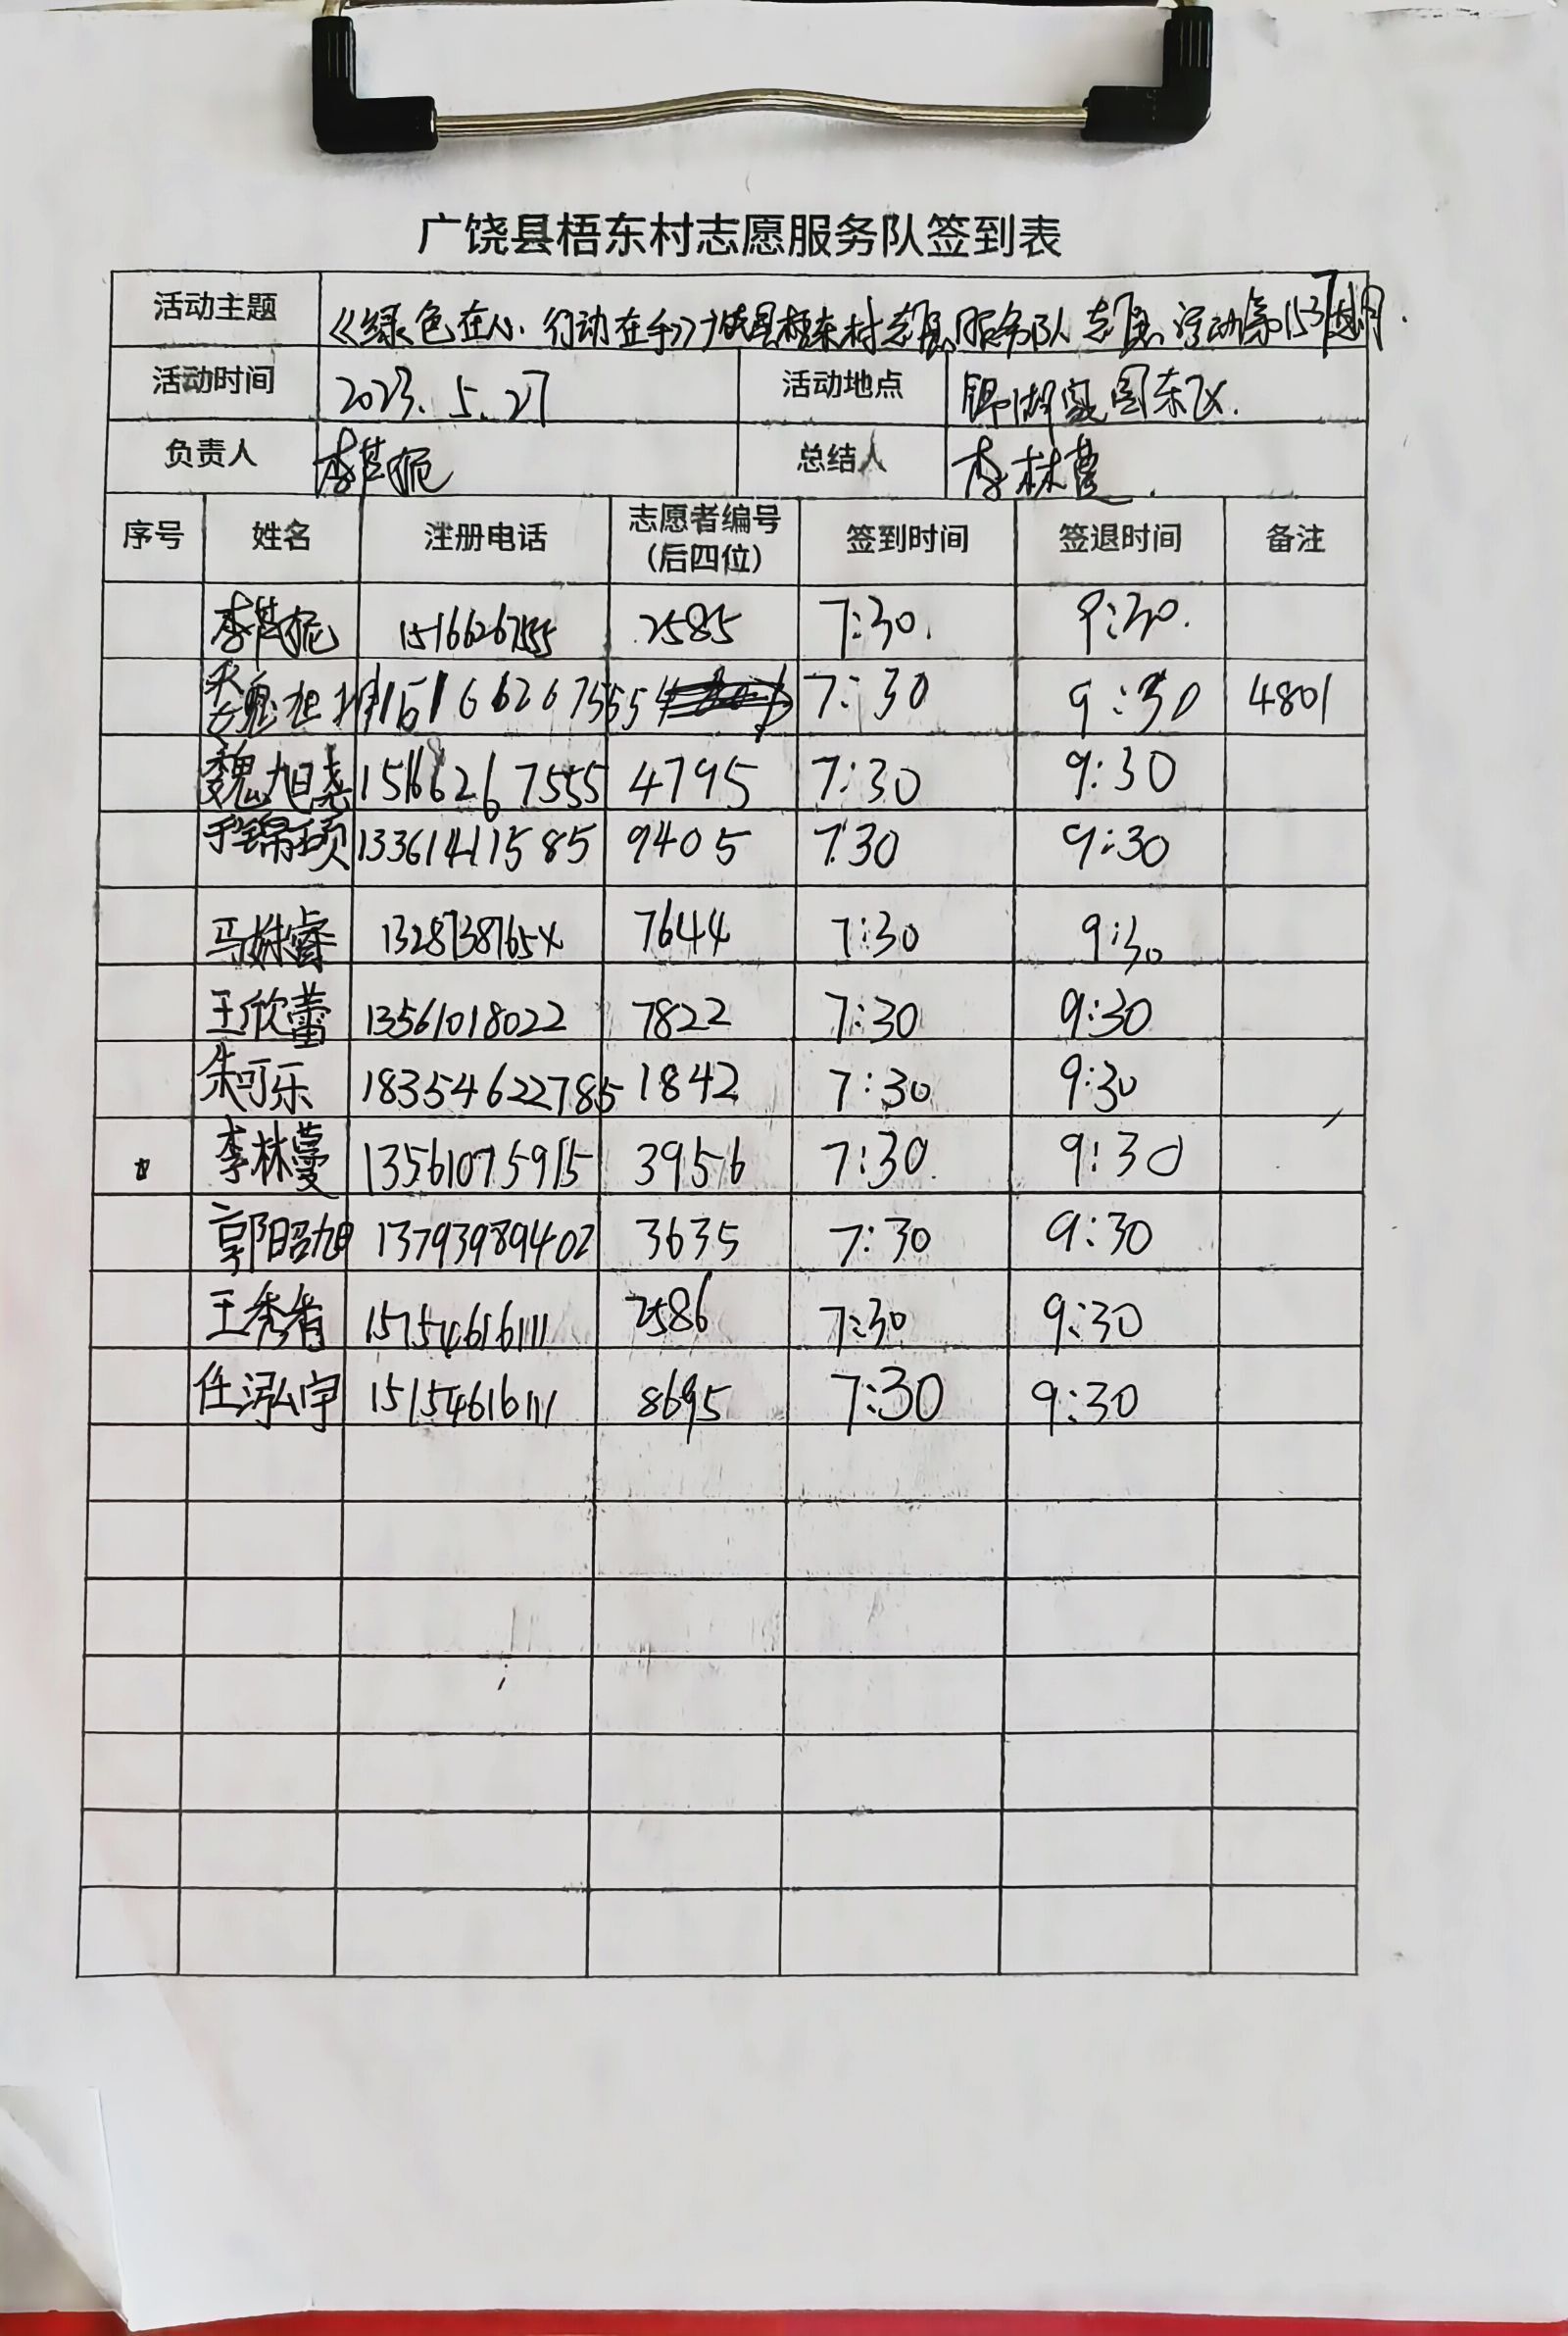 广饶县梧东村志愿服务队签到表
活动主题 《绿色在心 行动在手》广饶县梧东村志愿服务队志愿活动第153期
活动时间 2023.5.27 活动地点 锦湖家园东区.
负责人 李 总结人 李林蔓
序号 姓名 注册电话 志愿者编号（后四位） 签到时间 签退时间 备注
李 15166267555 2585 7:30. 9:30.
魏旭 15166267555 7:30 9:30 4801
魏旭尧 15166267555 4795 7:30 9:30
锦硕 13361411585 9405 7:30 9:30
马姝睿 1328738765x 7644 7:30 9:30
王欣蕾 13561018022 7822 7:30 9:30
朱可乐 18354622785 1842 7:30 9:30
李林蔓 13561075915 3956 7:30. 9:30
郭昭旭 13793989402 3635 7:30 9:30
王秀 15754616111 2586 7:30 9:30
任泓宇 15154616111 8695 7:30 9:30